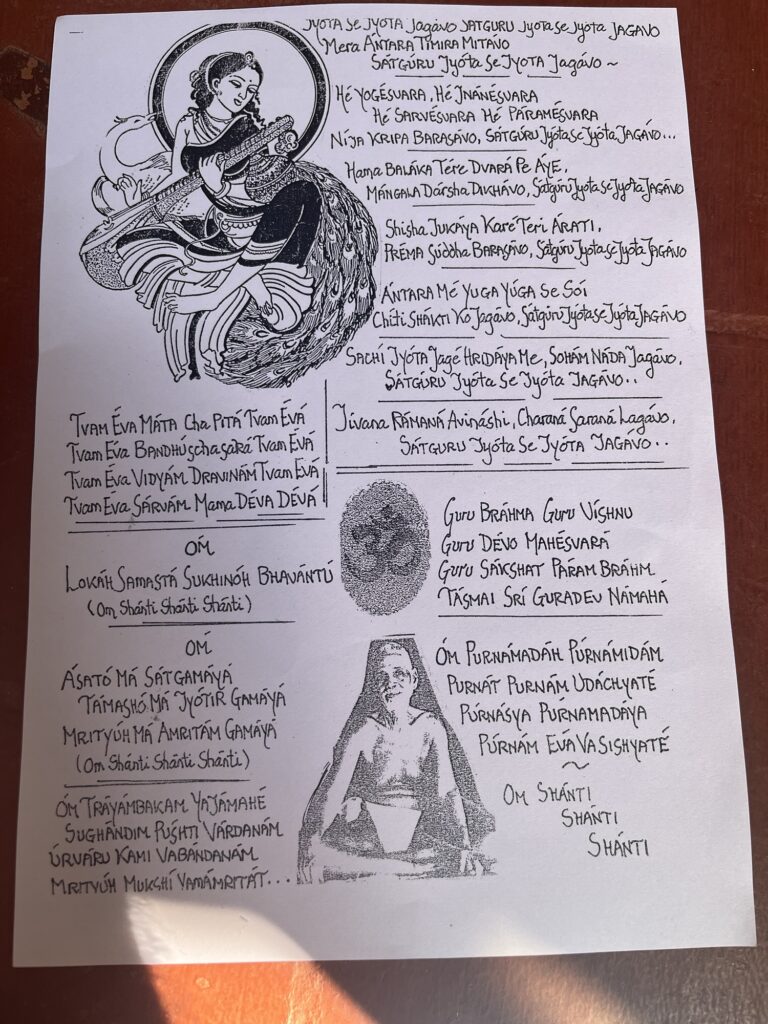 Jyota Se Jyota Jagávo Sátguru Jyota Se Jyóta JAGAVO
Mera Ántara Timira Mitávo
Sátgúru Jyóta Se Jyota Jagávo ~
Hé Yogésvara, Hé Jnánésvara
Hé Sarvésvara Hé Páramésvara
Níja Kripa Barasávo, Sátgúru Jyóta se Jyóta Jagávo...
Hama Baláka Tére Dvará Pe Áye,
Mángala Dársha Dikhávo, Sátgúru Jyóta se Jyóta Jagávo
Shisha Jukáya Karé Teri Árati,
Préma Súddha Barasávo, Sátgúru Jyóta se Jyóta Jagávo
Ántara Mé Yuga Yúga Se Sói
Chiti Shákti Ko Jagávo, Sátgurú Jyóta se Jyóta Jagávo
Sachí Jyóta Jagé Hridáya Me, Sohám Náda Jagávo,
Sátguru Jyóta Se Jyóta Jagávo..
Jívana Rámaná Avináshi, Charaná Saraná Lagávo,
Sátguru Jyóta Se Jyóta Jagávo..
Tvam Éva Máta Cha Pitá Tvam Évá
Tvam Éva Bandhúscha Saká Tvam Évá
Tvam Éva Vidyám Dravinám Tvam Évá
Tvam Éva Sárvám Mama Déva Dévá
OM
Lokáh Samastá Sukhinóh Bhavántú
(Om Shánti Shánti Shánti)
OM
Ásató Má Sátgamáyá
Támashó Má Jyótir Gamáyá
Mrityúh Má Amritám Gamáyá
(Om Shánti Shánti Shánti)
Óm Tráyámbakam Yajámahé
Sughándim Púshti Várdanám
Úrváru Kami Vabandanám
Mrityúh Mukshí Vamámritát...
ॐ
Guru Bráhma Guru Víshnu
Guru Dévo Mahésvará
Guru Sákshat Páram Bráhm
Tásmai Srí Guradev Námahá
Óm Purnámadáh Púrnámidám
Purnát Purnám Udáchyaté
Púrnásya Púrnamadáya
Púrnám Evá Vasishyaté
~
Om Shánti
Shánti
Shánti